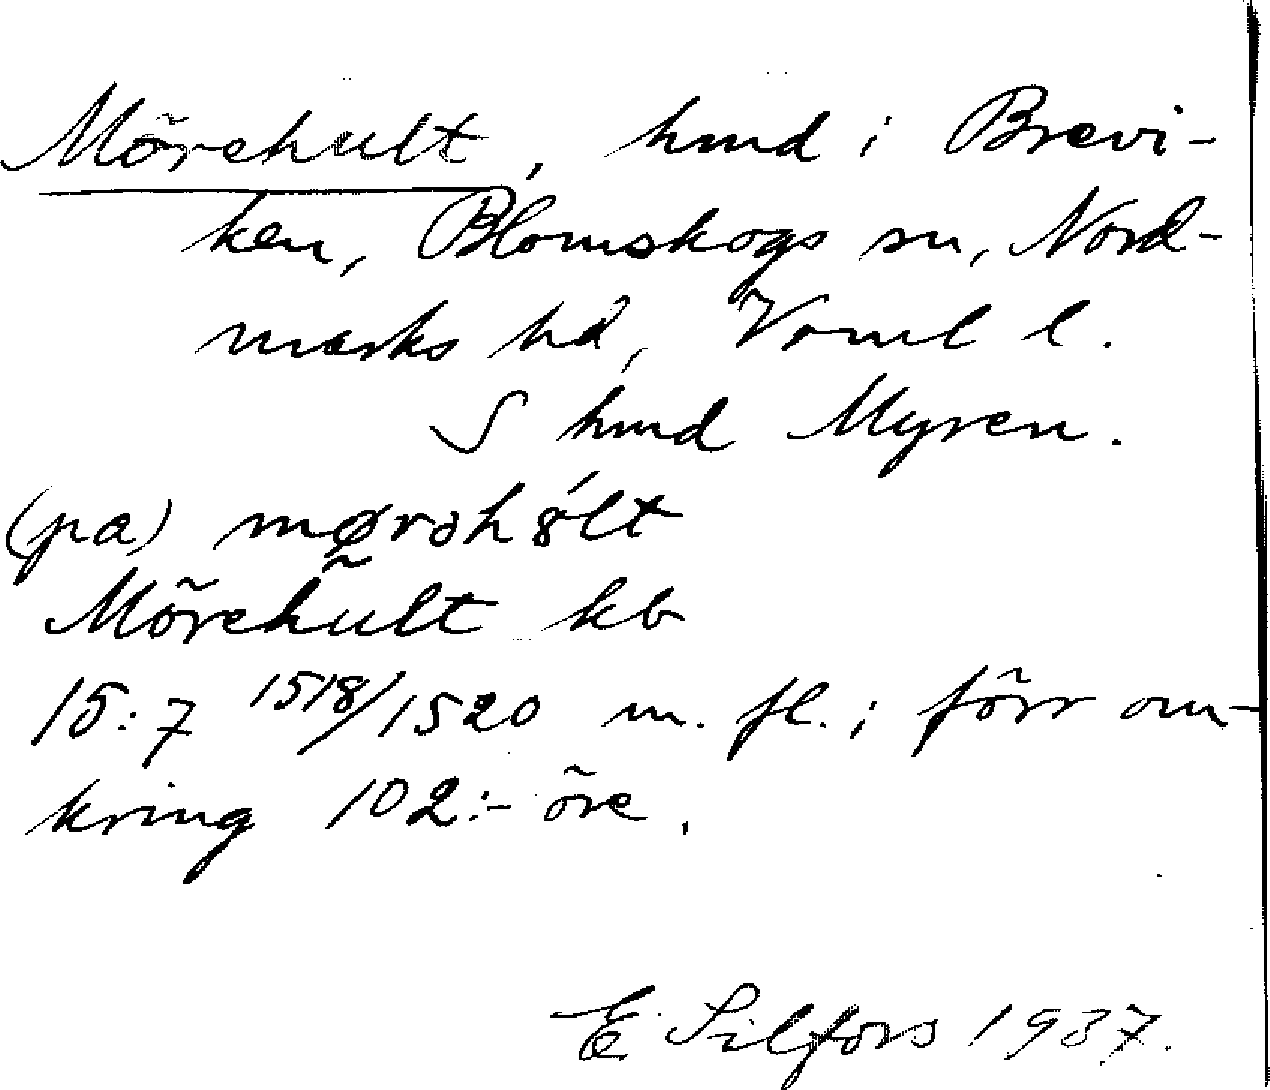 Mörehult, hmd i Brevi-
ken, Blomskogs sn, Nord-
marks hd, Vrml l.
S hmd Myren.
(pa) mørəhólt
Mörehult kb
15:7 1518/1520 m. fl.; förr om-
kring 102:- öre.
E Silfors 1937.